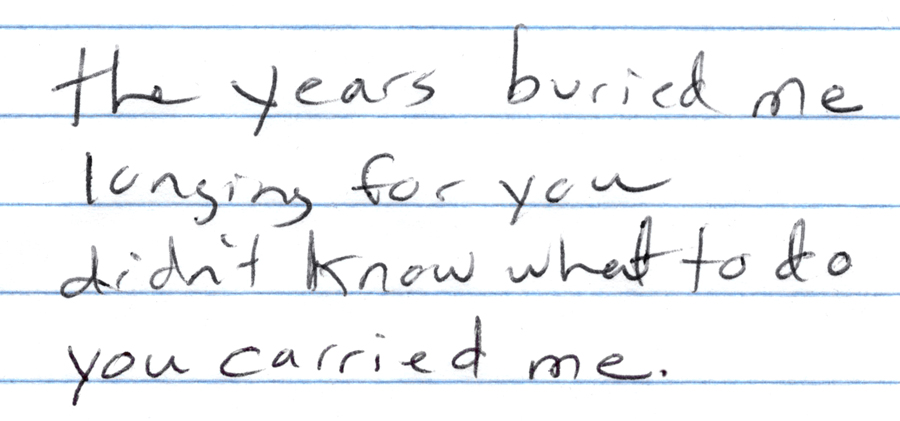 the years buried me
longing for you
didn't know what to do
you carried me.